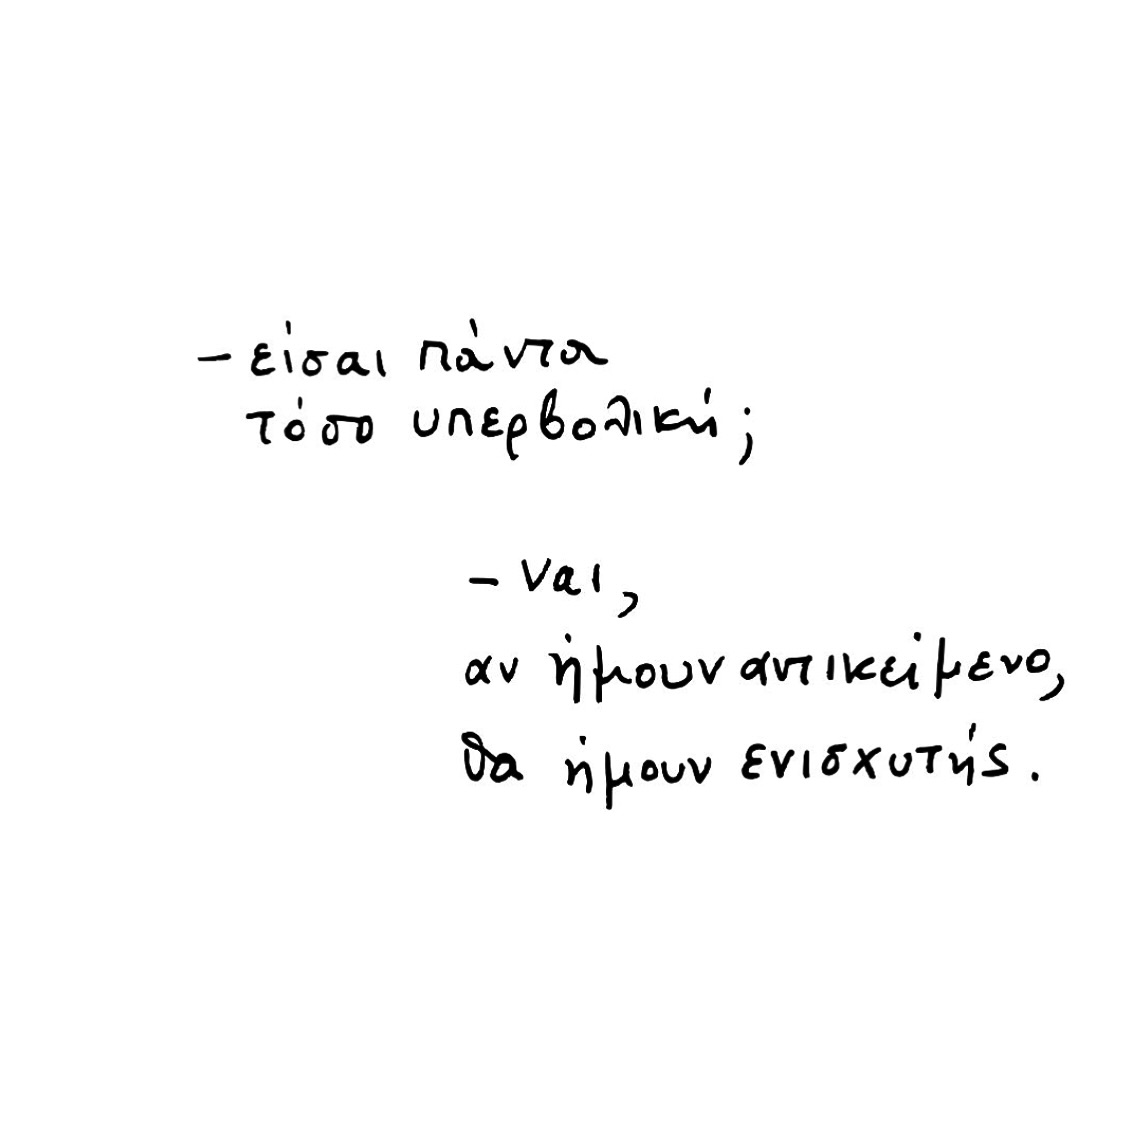 - είσαι πάντα
τόσο υπερβολική;
- ναι,
αν ήμουν αντικείμενο,
θα ήμουν ενισχυτής.